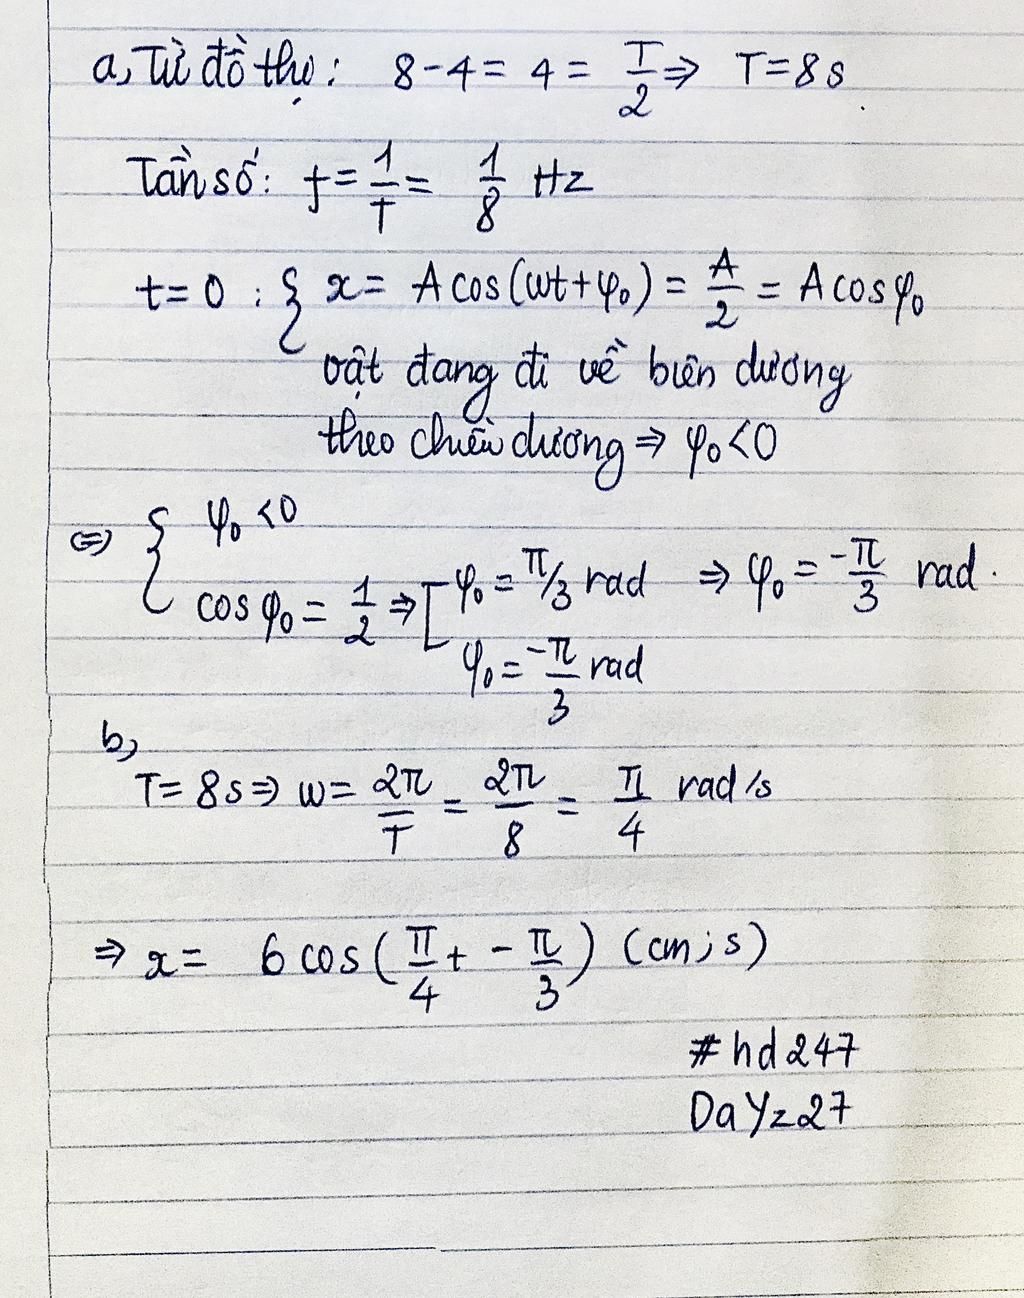 a, Từ đồ thị: 8-4 = 4 = T/2 ⇒ T = 8s
Tần số: f = 1/T = 1/8 Hz
t = 0 : { x = A cos(ωt+φ₀) = A/2 = A cosφ₀
vật đang đi về biên dương
theo chiều dương ⇒ φ₀<0
⇔ { φ₀ <0
cos φ₀ = 1/2 ⇒ [ φ₀ = π/3 rad ⇒ φ₀ = -π/3 rad.
φ₀ = -π/3 rad
b,
T = 8s ⇒ ω = 2π/T = 2π/8 = π/4 rad/s
⇒ x = 6 cos(π/4 t - π/3) (cm; s)
#hd247
DaYz27